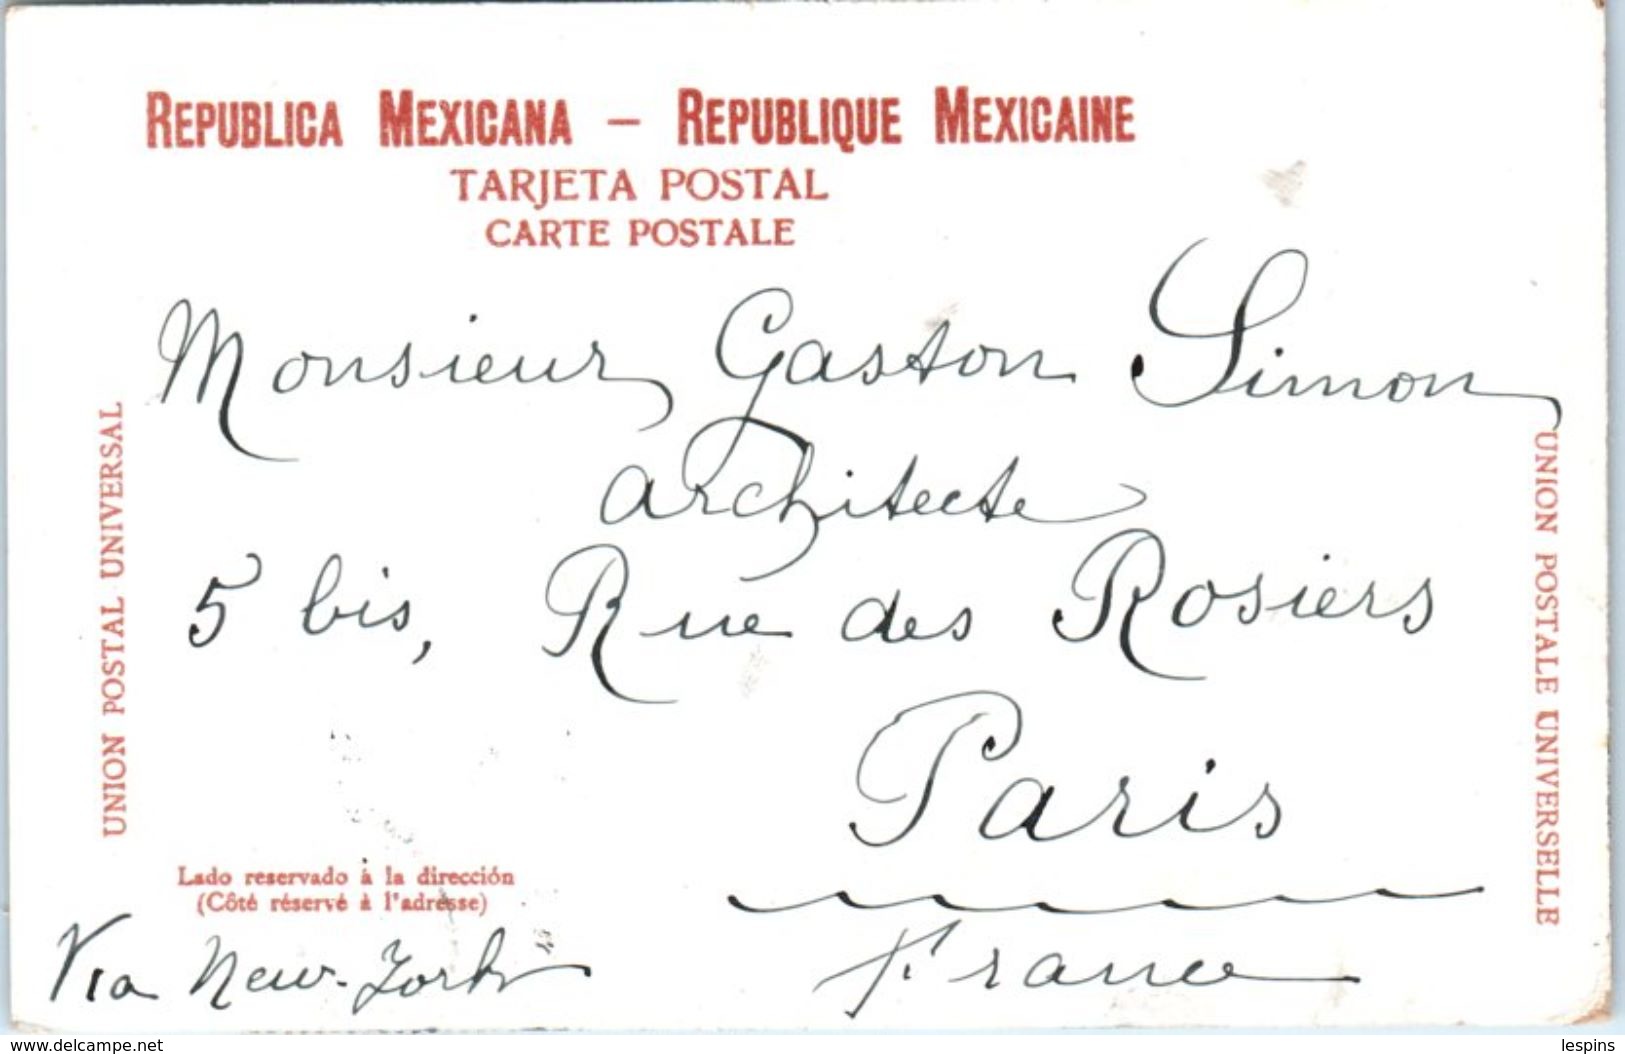 REPUBLICA MEXICANA – REPUBLIQUE MEXICAINE
TARJETA POSTAL
CARTE POSTALE
Monsieur Gaston Simon
architecte
5 bis, Rue des Rosiers
Paris
France
UNION POSTAL UNIVERSAL
UNION POSTALE UNIVERSELLE
Lado reservado á la dirección
(Côté réservé à l'adresse)
Via New-York
www.delcampe.net
lespins